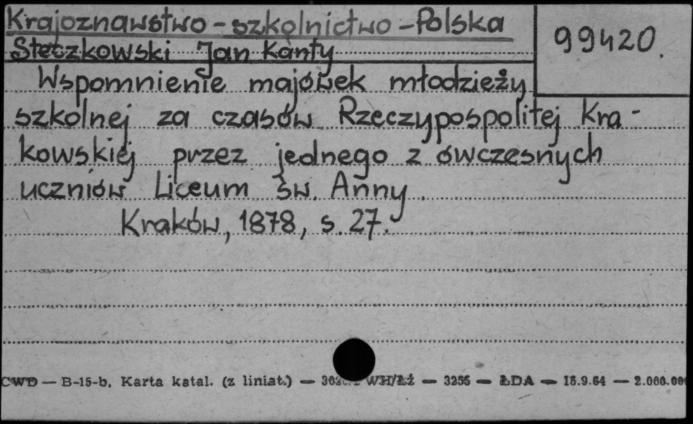 Krajoznawstwo - szkolnictwo - Polska
99420.
Steczkowski Jan Kanty
Wspomnienie majówek młodzieży
szkolnej za czasów Rzeczypospolitej Kra-
kowskiej przez jednego z ówczesnych
uczniów Liceum św. Anny.
Kraków, 1878, s. 27.
CWD — B-15-b, Karta katal. (z liniat.) — WH/Łź — 3255 — ŁDA — 18.9.64 — 2.000.000